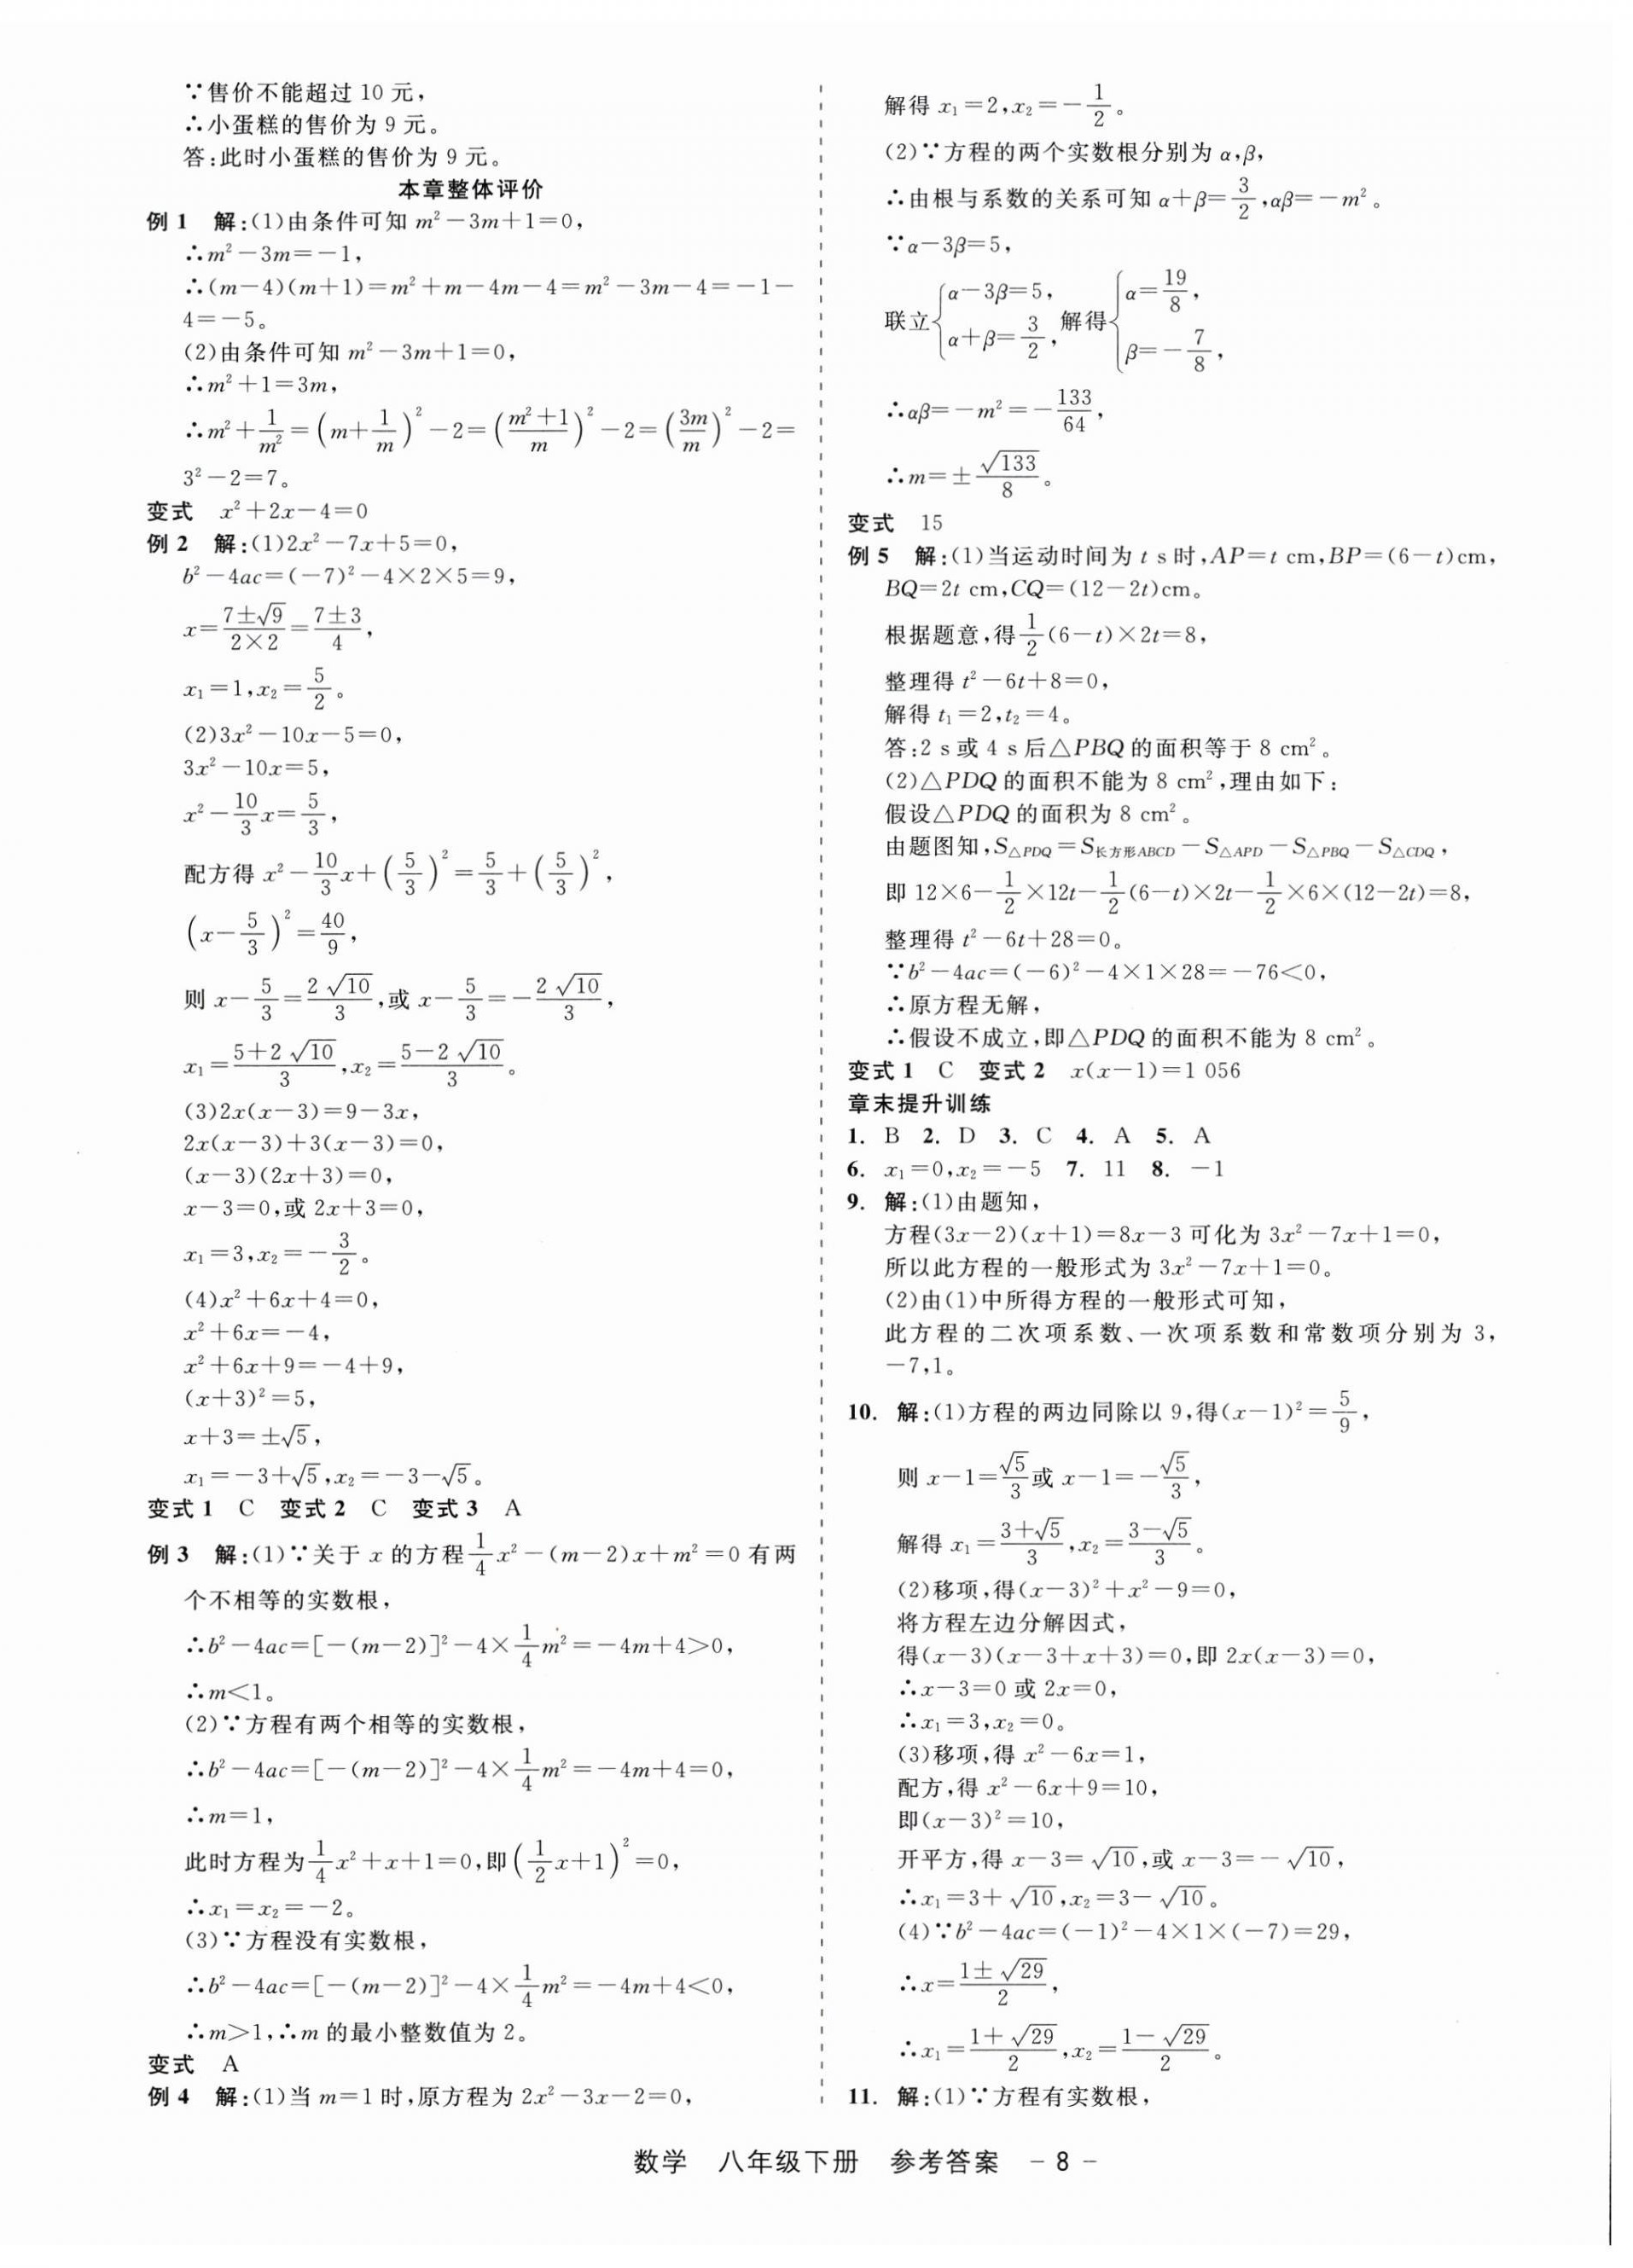 ∵售价不能超过 10 元，
∴小蛋糕的售价为 9 元。
答：此时小蛋糕的售价为 9 元。
本章整体评价
例 1 解：(1)由条件可知 m²－3m＋1＝0，
∴m²－3m＝－1，
∴(m－4)(m＋1)＝m²＋m－4m－4＝m²－3m－4＝－1－
4＝－5。
(2)由条件可知 m²－3m＋1＝0，
∴m²＋1＝3m，
∴m²＋1/m²＝(m＋1/m)²－2＝((m²＋1)/m)²－2＝(3m/m)²－2＝
3²－2＝7。
变式 x²＋2x－4＝0
例 2 解：(1)2x²－7x＋5＝0，
b²－4ac＝(－7)²－4×2×5＝9，
x＝(7±√9)/(2×2)＝(7±3)/4，
x₁＝1，x₂＝5/2。
(2)3x²－10x－5＝0，
3x²－10x＝5，
x²－10/3 x＝5/3，
配方得 x²－10/3 x＋(5/3)²＝5/3＋(5/3)²，
(x－5/3)²＝40/9，
则 x－5/3＝2√10/3，或 x－5/3＝－2√10/3，
x₁＝(5＋2√10)/3，x₂＝(5－2√10)/3。
(3)2x(x－3)＝9－3x，
2x(x－3)＋3(x－3)＝0，
(x－3)(2x＋3)＝0，
x－3＝0，或 2x＋3＝0，
x₁＝3，x₂＝－3/2。
(4)x²＋6x＋4＝0，
x²＋6x＝－4，
x²＋6x＋9＝－4＋9，
(x＋3)²＝5，
x＋3＝±√5，
x₁＝－3＋√5，x₂＝－3－√5。
变式 1 C 变式 2 C 变式 3 A
例 3 解：(1)∵关于 x 的方程 1/4 x²－(m－2)x＋m²＝0 有两
个不相等的实数根，
∴b²－4ac＝[－(m－2)]²－4×1/4 m²＝－4m＋4＞0，
∴m＜1。
(2)∵方程有两个相等的实数根，
∴b²－4ac＝[－(m－2)]²－4×1/4 m²＝－4m＋4＝0，
∴m＝1，
此时方程为 1/4 x²＋x＋1＝0，即(1/2 x＋1)²＝0，
∴x₁＝x₂＝－2。
(3)∵方程没有实数根，
∴b²－4ac＝[－(m－2)]²－4×1/4 m²＝－4m＋4＜0，
∴m＞1，∴m 的最小整数值为 2。
变式 A
例 4 解：(1)当 m＝1 时，原方程为 2x²－3x－2＝0，
解得 x₁＝2，x₂＝－1/2。
(2)∵方程的两个实数根分别为 α，β，
∴由根与系数的关系可知 α＋β＝3/2，αβ＝－m²。
∵α－3β＝5，
联立{α－3β＝5，α＋β＝3/2，解得{α＝19/8，β＝－7/8，
∴αβ＝－m²＝－133/64，
∴m＝±√133/8。
变式 15
例 5 解：(1)当运动时间为 t s 时，AP＝t cm，BP＝(6－t)cm，
BQ＝2t cm，CQ＝(12－2t)cm。
根据题意，得 1/2(6－t)×2t＝8，
整理得 t²－6t＋8＝0，
解得 t₁＝2，t₂＝4。
答：2 s 或 4 s 后△PBQ 的面积等于 8 cm²。
(2)△PDQ 的面积不能为 8 cm²，理由如下：
假设△PDQ 的面积为 8 cm²。
由题图知，S△PDQ＝S长方形ABCD－S△APD－S△PBQ－S△CDQ，
即 12×6－1/2×12t－1/2(6－t)×2t－1/2×6×(12－2t)＝8，
整理得 t²－6t＋28＝0。
∵b²－4ac＝(－6)²－4×1×28＝－76＜0，
∴原方程无解，
∴假设不成立，即△PDQ 的面积不能为 8 cm²。
变式 1 C 变式 2 x(x－1)＝1 056
章末提升训练
1. B 2. D 3. C 4. A 5. A
6. x₁＝0，x₂＝－5 7. 11 8. －1
9. 解：(1)由题知，
方程(3x－2)(x＋1)＝8x－3 可化为 3x²－7x＋1＝0，
所以此方程的一般形式为 3x²－7x＋1＝0。
(2)由(1)中所得方程的一般形式可知，
此方程的二次项系数、一次项系数和常数项分别为 3，
－7，1。
10. 解：(1)方程的两边同除以 9，得(x－1)²＝5/9，
则 x－1＝√5/3 或 x－1＝－√5/3，
解得 x₁＝(3＋√5)/3，x₂＝(3－√5)/3。
(2)移项，得(x－3)²＋x²－9＝0，
将方程左边分解因式，
得(x－3)(x－3＋x＋3)＝0，即 2x(x－3)＝0，
∴x－3＝0 或 2x＝0，
∴x₁＝3，x₂＝0。
(3)移项，得 x²－6x＝1，
配方，得 x²－6x＋9＝10，
即(x－3)²＝10，
开平方，得 x－3＝√10，或 x－3＝－√10，
∴x₁＝3＋√10，x₂＝3－√10。
(4)∵b²－4ac＝(－1)²－4×1×(－7)＝29，
∴x＝(1±√29)/2，
∴x₁＝(1＋√29)/2，x₂＝(1－√29)/2。
11. 解：(1)∵方程有实数根，
数学 八年级下册 参考答案 －8－